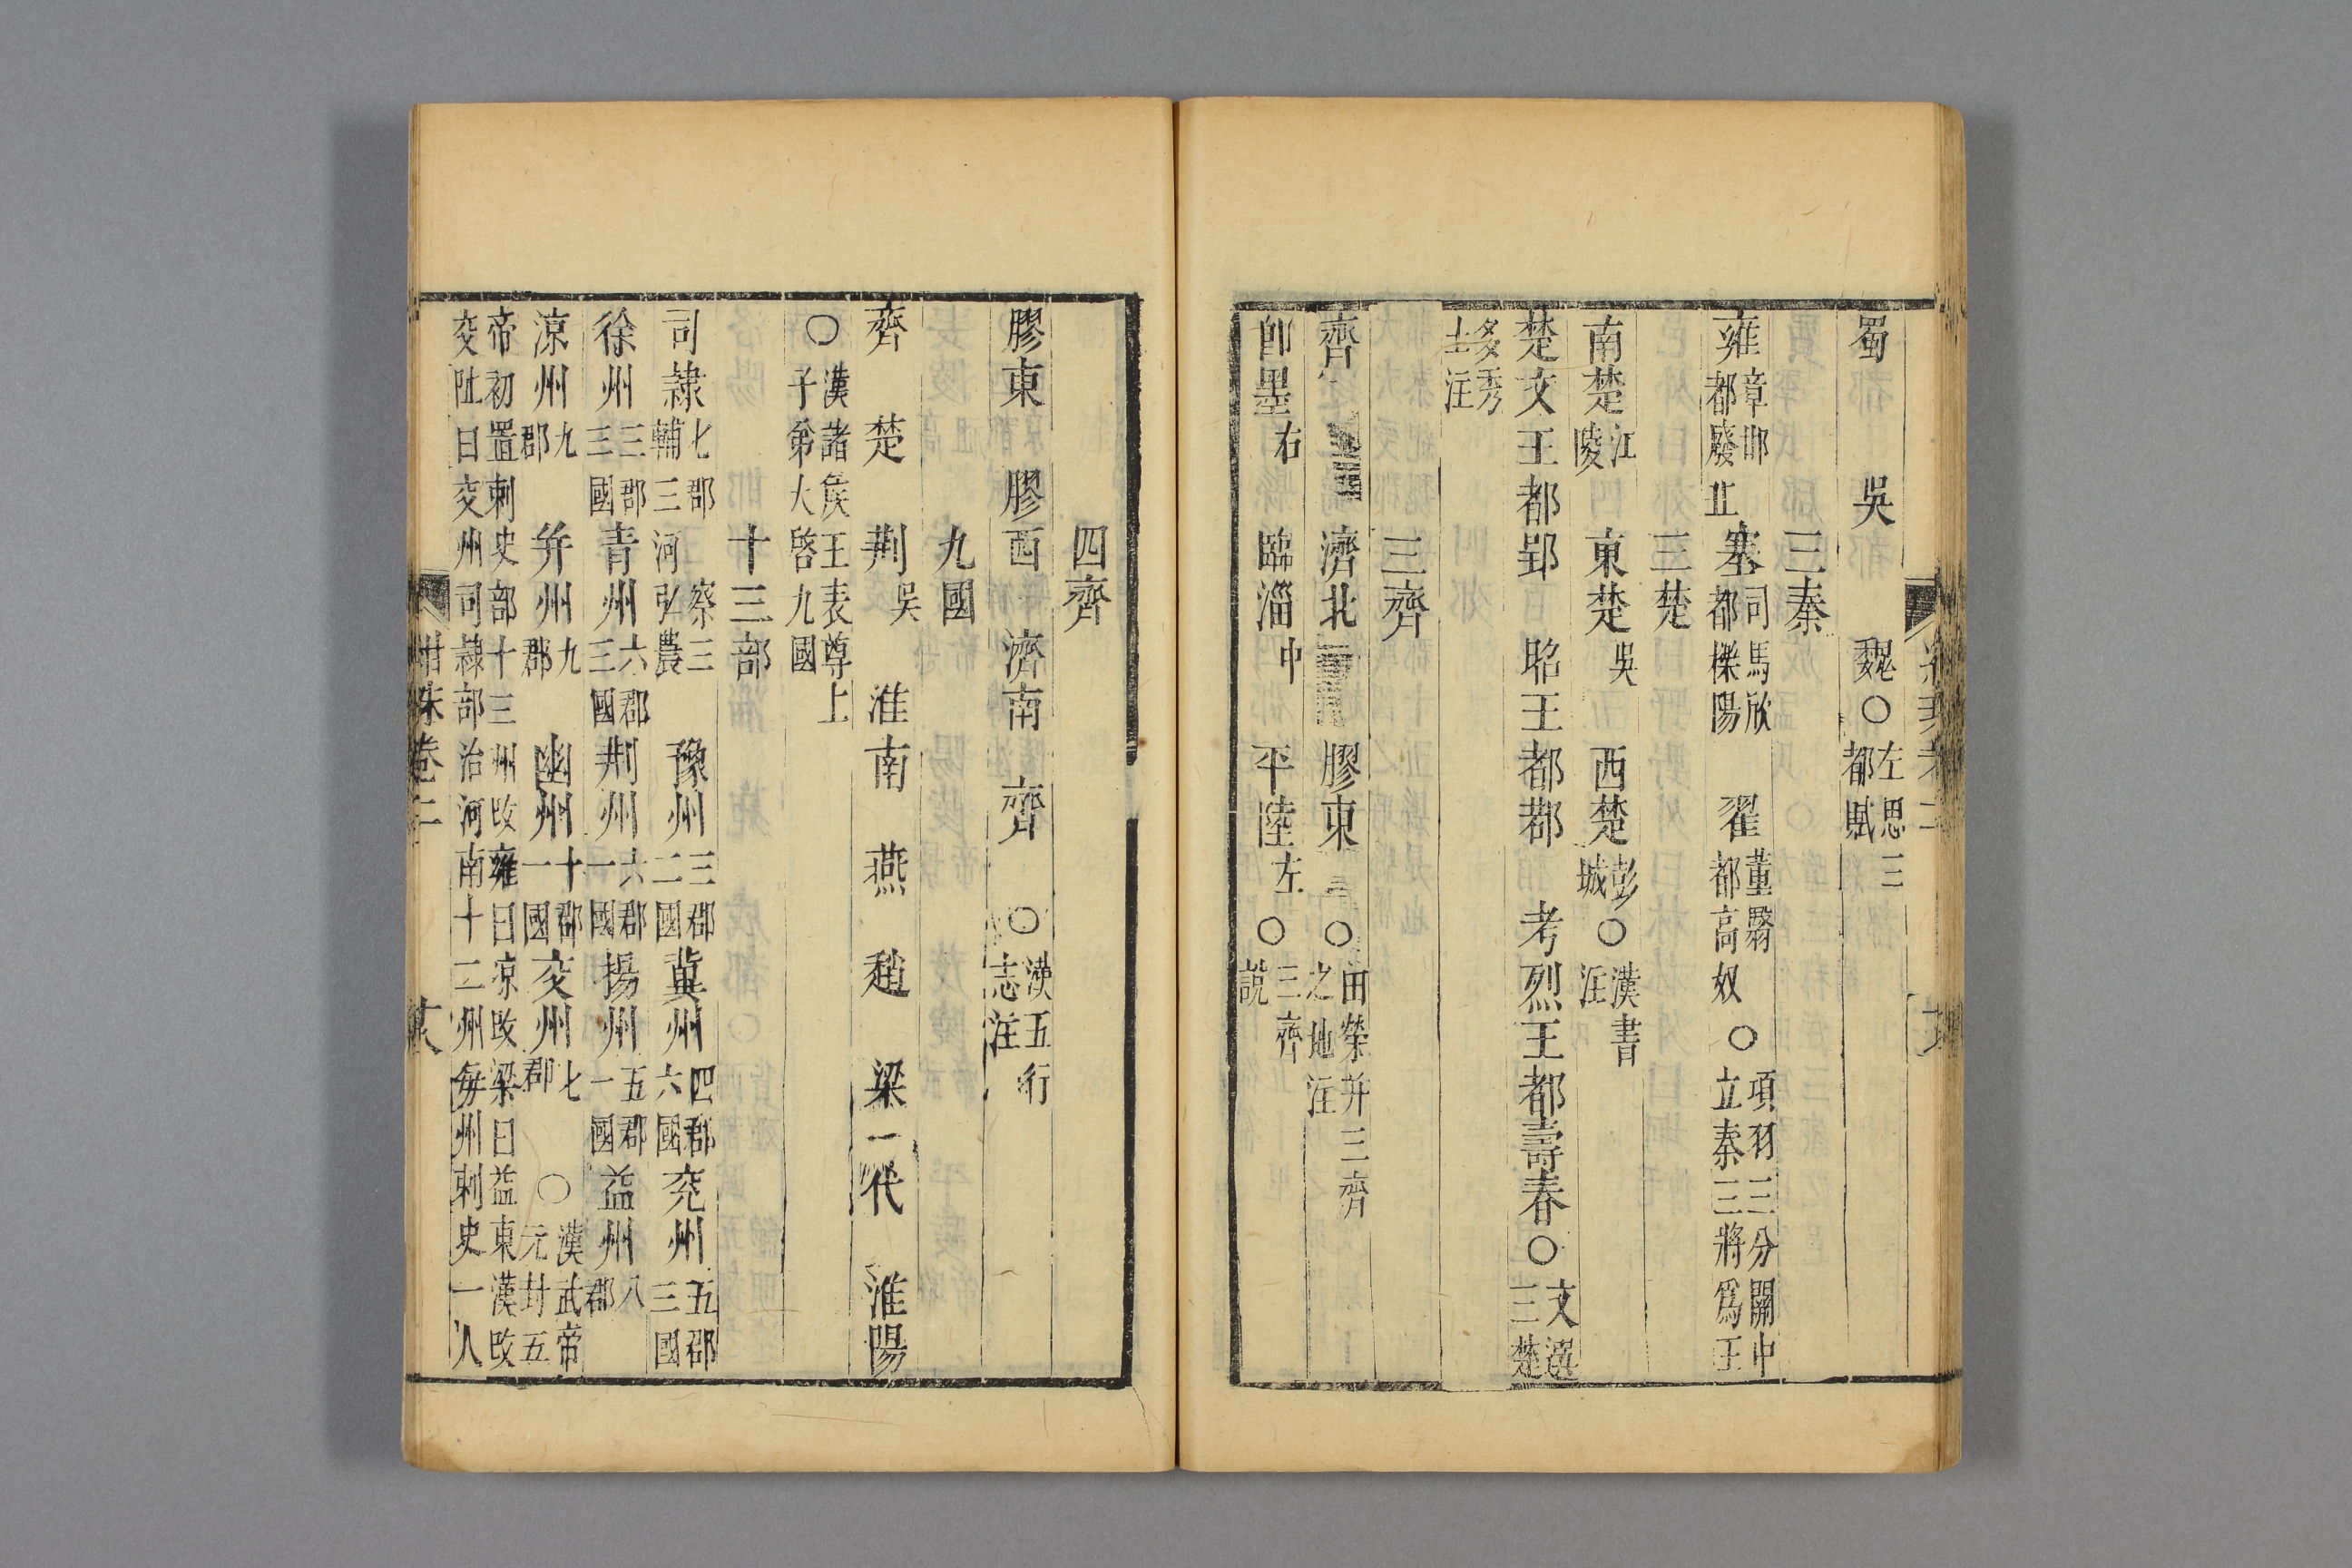 蜀　吳　魏○左思三都賦
三秦
雍章邯都廢丘　塞司馬欣都櫟陽　翟董翳都高奴○項羽三分關中立秦三將爲王
三楚
南楚江陵　東楚吳　西楚彭城○漢書注
楚文王都郢　昭王都鄀　考烈王都壽春○文選三楚
多秀士注
三齊
齊　濟北　膠東○田榮并三齊之地注
卽墨右　臨淄中　平陸左○三齊說
四齊
膠東　膠西　濟南　齊○漢五行志注
九國
齊　楚　荆吳　淮南　燕　趙　梁　代　淮陽
○漢諸侯王表尊王子弟大啓九國上
十三部
司隸七郡察三輔三河弘農　豫州三郡二國　冀州四郡六國　兗州五郡三國
徐州三郡三國　青州六郡三國　荆州六郡一國　揚州五郡一國　益州八郡
涼州九郡　并州九郡　幽州十郡一國　交州七郡○漢武帝元封五
帝初置刺史部十三州攺雍曰涼攺梁曰益東漢攺交阯曰交州司隸部治河南十二州每州刺史一人
紺珠卷二